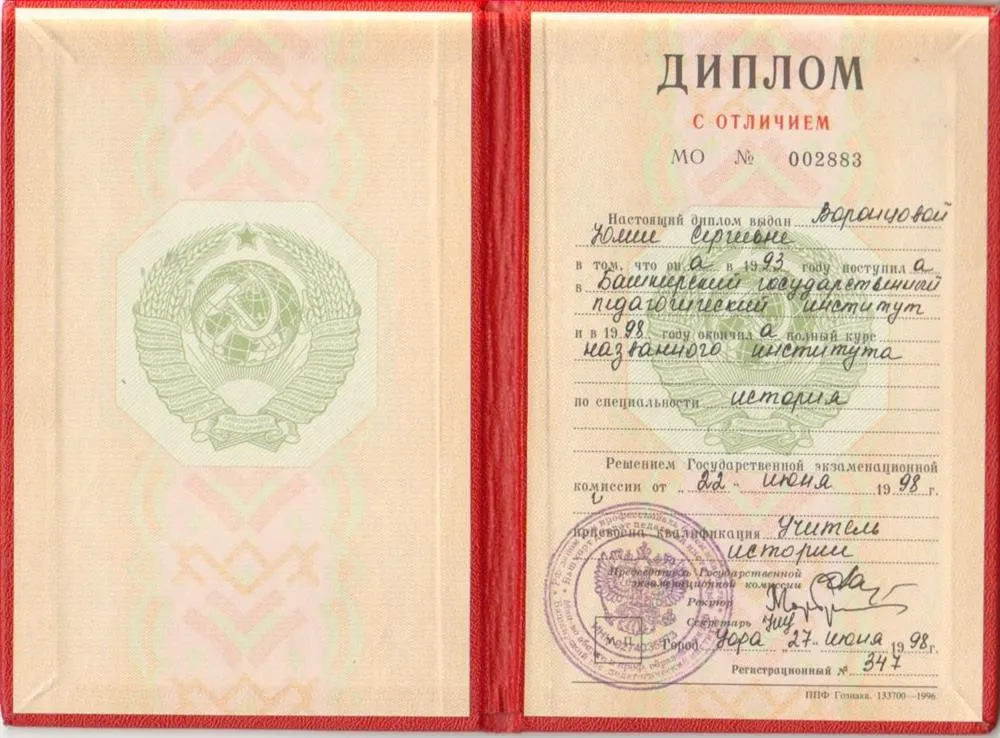 ДИПЛОМ
С ОТЛИЧИЕМ
МО № 002883
Настоящий диплом выдан Воронцовой
Юлии Сергеевне
в том, что он а в 1993 году поступил а
в Башкирский государственный
педагогический институт
и в 1998 году окончил а полный курс
названного института
по специальности история
Решением Государственной экзаменационной
комиссии от „22“ июня 1998 г.
присвоена квалификация Учитель
истории
Председатель Государственной
экзаменационной комиссии
Ректор
Секретарь
Город Уфа „27“ июня 1998 г.
Регистрационный № 347
ППФ Гознака. 133700—1996